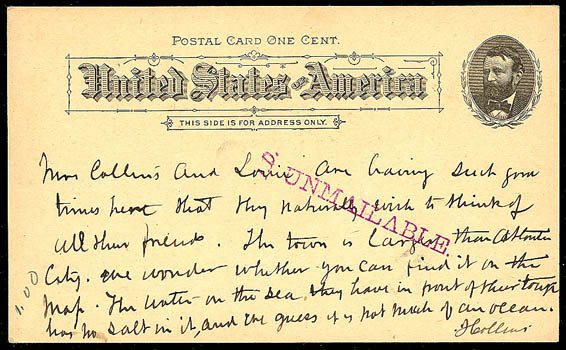 POSTAL CARD ONE CENT.
United States of America
THIS SIDE IS FOR ADDRESS ONLY.
Mrs Collins and are having such good
S. UNMAILABLE.
times here that they naturally wish to think of
all their friends. The town is larger than
City. we wonder whether you can find it on the
map. The water on the sea they have in front of their town
has no salt in it, and we guess it is not much of an ocean.
Collins
1.00